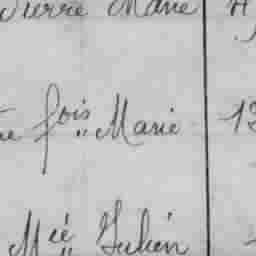 Pierre Marie
fois Marie 13
Mée Julien